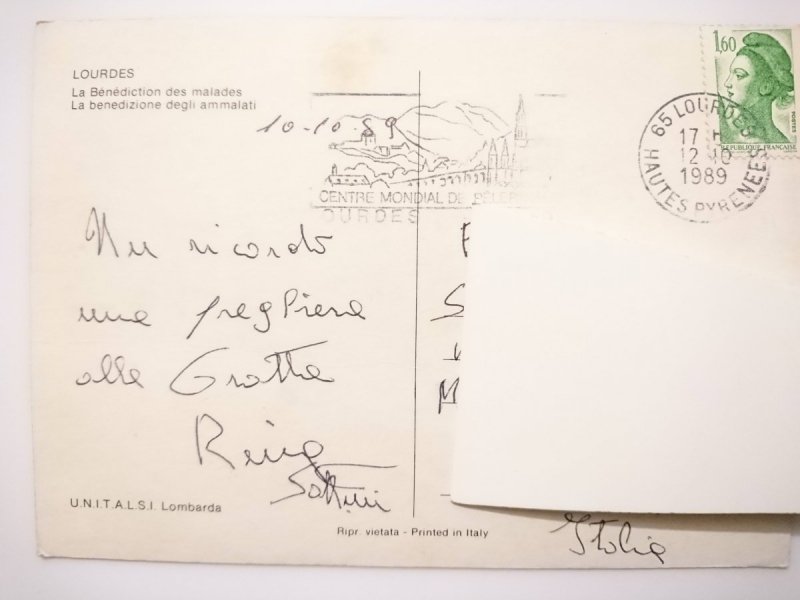 LOURDES
La Bénédiction des malades
La benedizione degli ammalati
10-10-89
CENTRE MONDIAL DE PÈLER
OURDES
1,60
POSTES
REPUBLIQUE FRANÇAISE
65 LOURDES
17 H
12-10
1989
HAUTES PYRENEES
Un ricordo
una preghiera
alla Grotta
Sottini
Italia
U.N.I.T.A.L.S.I. Lombarda
Ripr. vietata - Printed in Italy